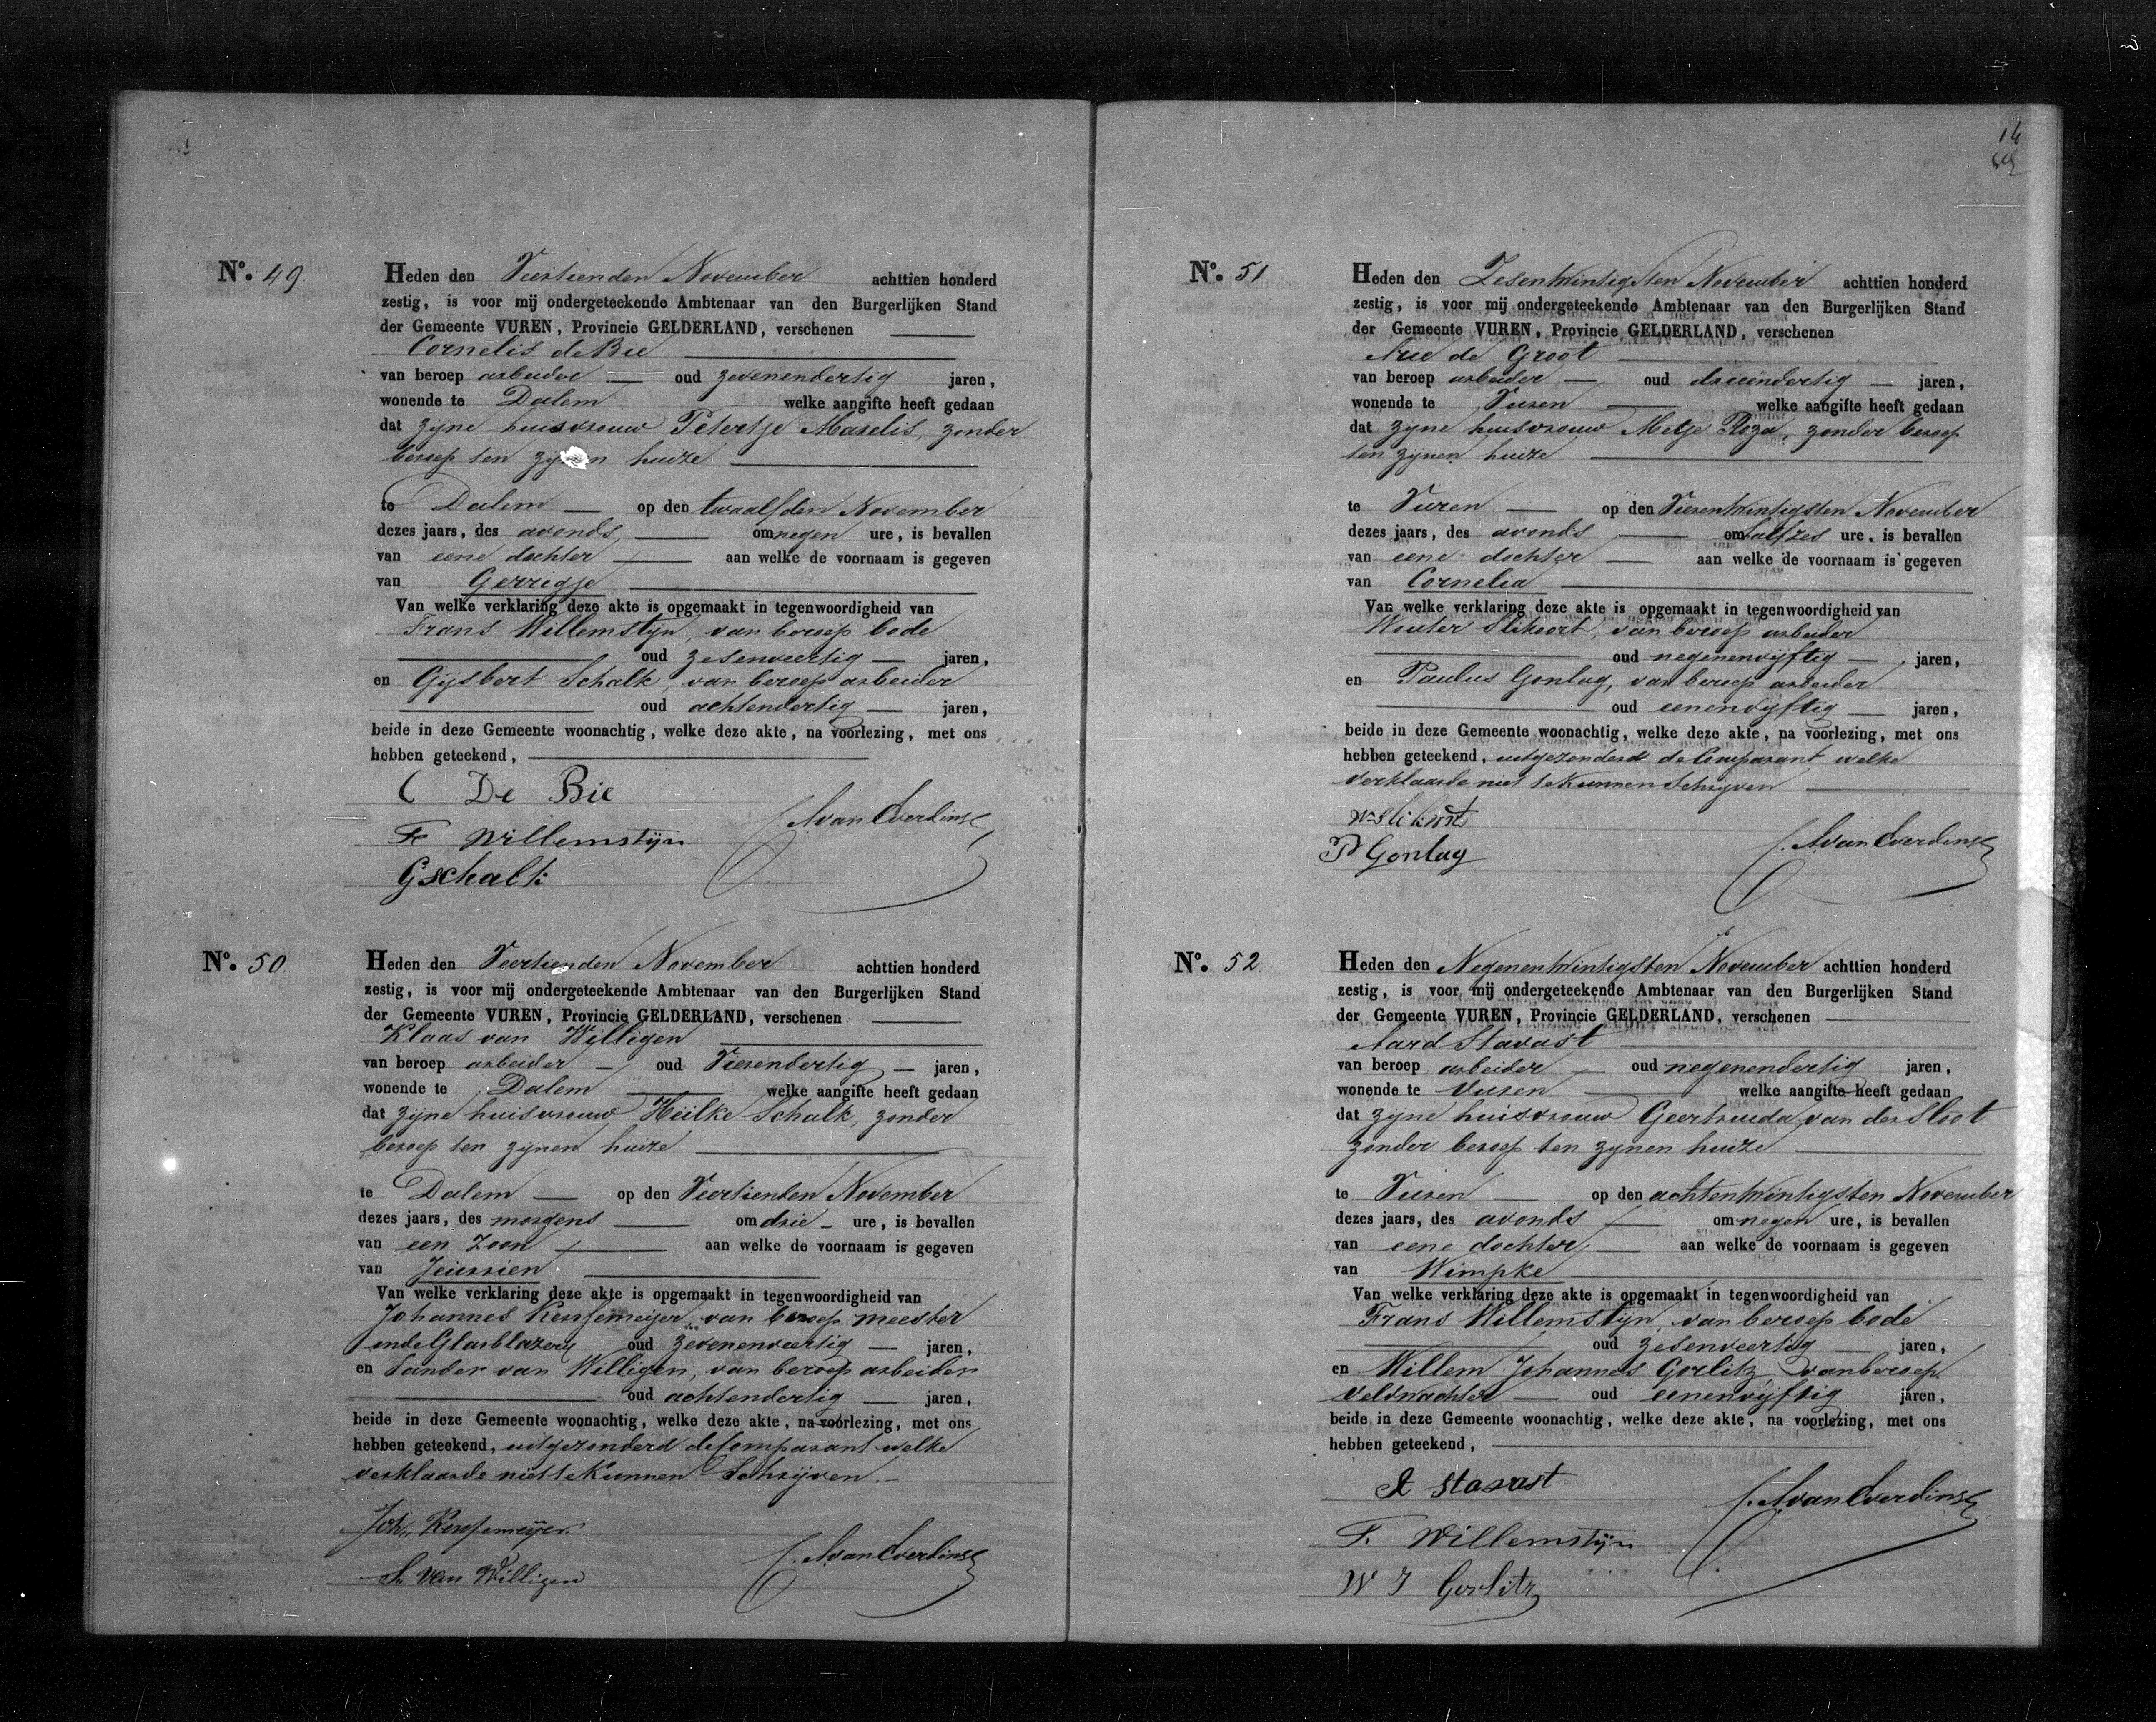 No. 49.
Heden den Veertienden November achttien honderd
zestig, is voor mij ondergeteekende Ambtenaar van den Burgerlijken Stand
der Gemeente VUREN, Provincie GELDERLAND, verschenen
Cornelis de Bie
van beroep arbeider oud zevenendertig jaren,
wonende te Dalem welke aangifte heeft gedaan
dat zyne huisvrouw Petertje Maselis, zonder
beroep ten zynen huize
te Dalem op den twaalfden November
dezes jaars, des avonds om negen ure, is bevallen
van eene dochter aan welke de voornaam is gegeven
van Gerrigje
Van welke verklaring deze akte is opgemaakt in tegenwoordigheid van
Frans Willemstyn, van beroep bode
oud zesenveertig jaren,
en Gijsbert Schalk, van beroep arbeider
oud achtendertig jaren,
beide in deze Gemeente woonachtig, welke deze akte, na voorlezing, met ons
hebben geteekend,
C De Bie
F Willemstijn
G Schalk
No. 50
Heden den Veertienden November achttien honderd
zestig, is voor mij ondergeteekende Ambtenaar van den Burgerlijken Stand
der Gemeente VUREN, Provincie GELDERLAND, verschenen
Klaas van Willigen
van beroep arbeider oud Vierendertig jaren,
wonende te Dalem welke aangifte heeft gedaan
dat zyne huisvrouw Heilke Schalk, zonder
beroep ten zynen huize
te Dalem op den Veertienden November
dezes jaars, des morgens om drie ure, is bevallen
van een Zoon aan welke de voornaam is gegeven
van
Van welke verklaring deze akte is opgemaakt in tegenwoordigheid van
Johannes van beroep meester
in de Glasblazery oud zevenenveertig jaren,
en Sander van Willigen, van beroep arbeider
oud achtendertig jaren,
beide in deze Gemeente woonachtig, welke deze akte, na voorlezing, met ons
hebben geteekend, uitgezonderd de Comparant welke
verklaarde niet te Kunnen Schrijven.
Joh.
S van Willigen
No. 51
Heden den Zesentwintigsten November achttien honderd
zestig, is voor mij ondergeteekende Ambtenaar van den Burgerlijken Stand
der Gemeente VUREN, Provincie GELDERLAND, verschenen
Arie de Groot
van beroep arbeider oud drieëndertig jaren,
wonende te Vuren welke aangifte heeft gedaan
dat zyne huisvrouw Metje Roza, zonder beroep
ten zynen huize
te Vuren op den Vierentwintigsten November
dezes jaars, des avonds om halfzes ure, is bevallen
van eene dochter aan welke de voornaam is gegeven
van Cornelia
Van welke verklaring deze akte is opgemaakt in tegenwoordigheid van
Wouter Slikoort, van beroep arbeider
oud negenenvijftig jaren,
en Paulus Gonlag, van beroep arbeider
oud eenenvijftig jaren,
beide in deze Gemeente woonachtig, welke deze akte, na voorlezing, met ons
hebben geteekend, uitgezonderd de Comparant welke
verklaarde niet te Kunnen Schrijven
P Gonlag
No. 52.
Heden den Negenentwintigsten November achttien honderd
zestig, is voor mij ondergeteekende Ambtenaar van den Burgerlijken Stand
der Gemeente VUREN, Provincie GELDERLAND, verschenen
Aard Stavast
van beroep arbeider oud negenendertig jaren,
wonende te Vuren welke aangifte heeft gedaan
dat zyne huisvrouw Geertruida van der Sloot
zonder beroep ten zynen huize
te Vuren op den achtentwintigsten November
dezes jaars, des avonds om negen ure, is bevallen
van eene dochter aan welke de voornaam is gegeven
van Wimpke
Van welke verklaring deze akte is opgemaakt in tegenwoordigheid van
Frans Willemstyn, van beroep bode
oud zesenveertig jaren,
en Willem Johannes Gorlitz van beroep
veldwachter oud eenenvijftig jaren,
beide in deze Gemeente woonachtig, welke deze akte, na voorlezing, met ons
hebben geteekend,
A Stavast
F. Willemstijn
W J Gorlitz